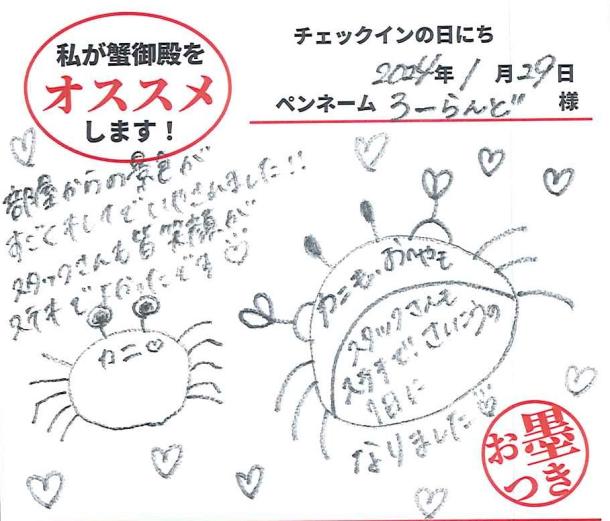 私が蟹御殿を
オススメ
します！
チェックインの日にち
2024年 1月29日
ペンネーム ろーらんど 様
部屋からの景色が
すごくキレイでいやされました!!
スタッフさんも皆笑顔が
ステキでよかったです♡
カニ♡
カニも、おへやも
スタッフさんも
ステキで!さいこうの
1日に
なりました♡
お墨
つき